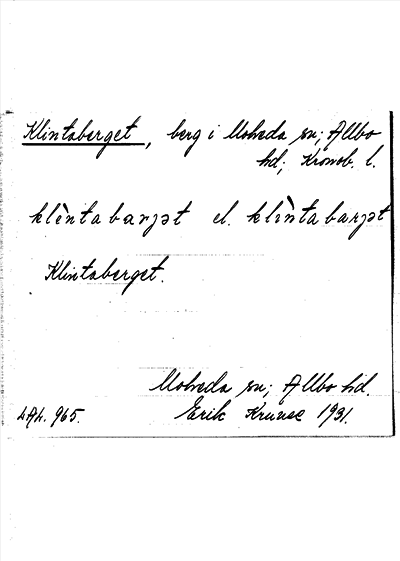 Klintaberget, berg i Moheda sn; Allbo
hd; Kronob. l.
klèntabarjət el. klìntabarjət
Klintaberget.
Moheda sn; Allbo hd.
LAL. 965. Erik Kruuse 1931.